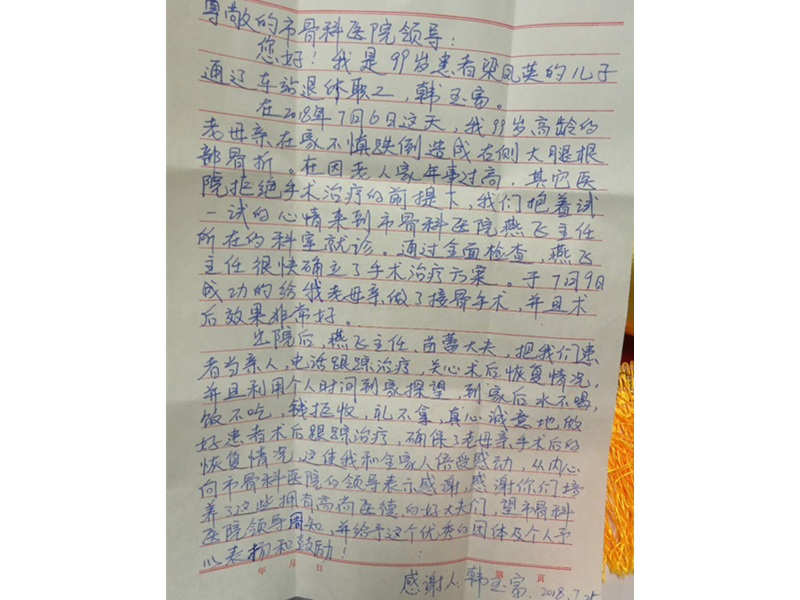 尊敬的市骨科医院领导：
您好！我是99岁患者梁凤英的儿子
通辽车站退休职工，韩玉富。
在2018年7月6日这天，我99岁高龄的
老母亲在家不慎跌倒造成右侧大腿根
部骨折。在因老人家年事过高，其它医
院拒绝手术治疗的前提下，我们抱着试
一试的心情来到市骨科医院燕飞主任
所在的科室就诊。通过全面检查，燕飞
主任很快确立了手术治疗方案。于7月9日
成功的给我老母亲做了接骨手术，并且术
后效果非常好。
出院后，燕飞主任、苗蕾大夫，把我们患
者当亲人，电话跟踪治疗，关心术后恢复情况，
并且利用个人时间到家探望，到家后水不喝，
饭不吃，钱拒收，礼不拿，真心诚意地做
好患者术后跟踪治疗，确保了老母亲手术后的
恢复情况，这使我和全家人倍受感动，从内心
向市骨科医院的领导表示感谢，感谢你们培
养了这些拥有高尚医德的好大夫们，望市骨科
医院领导周知，并给予这个优秀的团体及个人予
以表扬和鼓励！
年 月 日 第 页
感谢人：韩玉富 2018.7.25